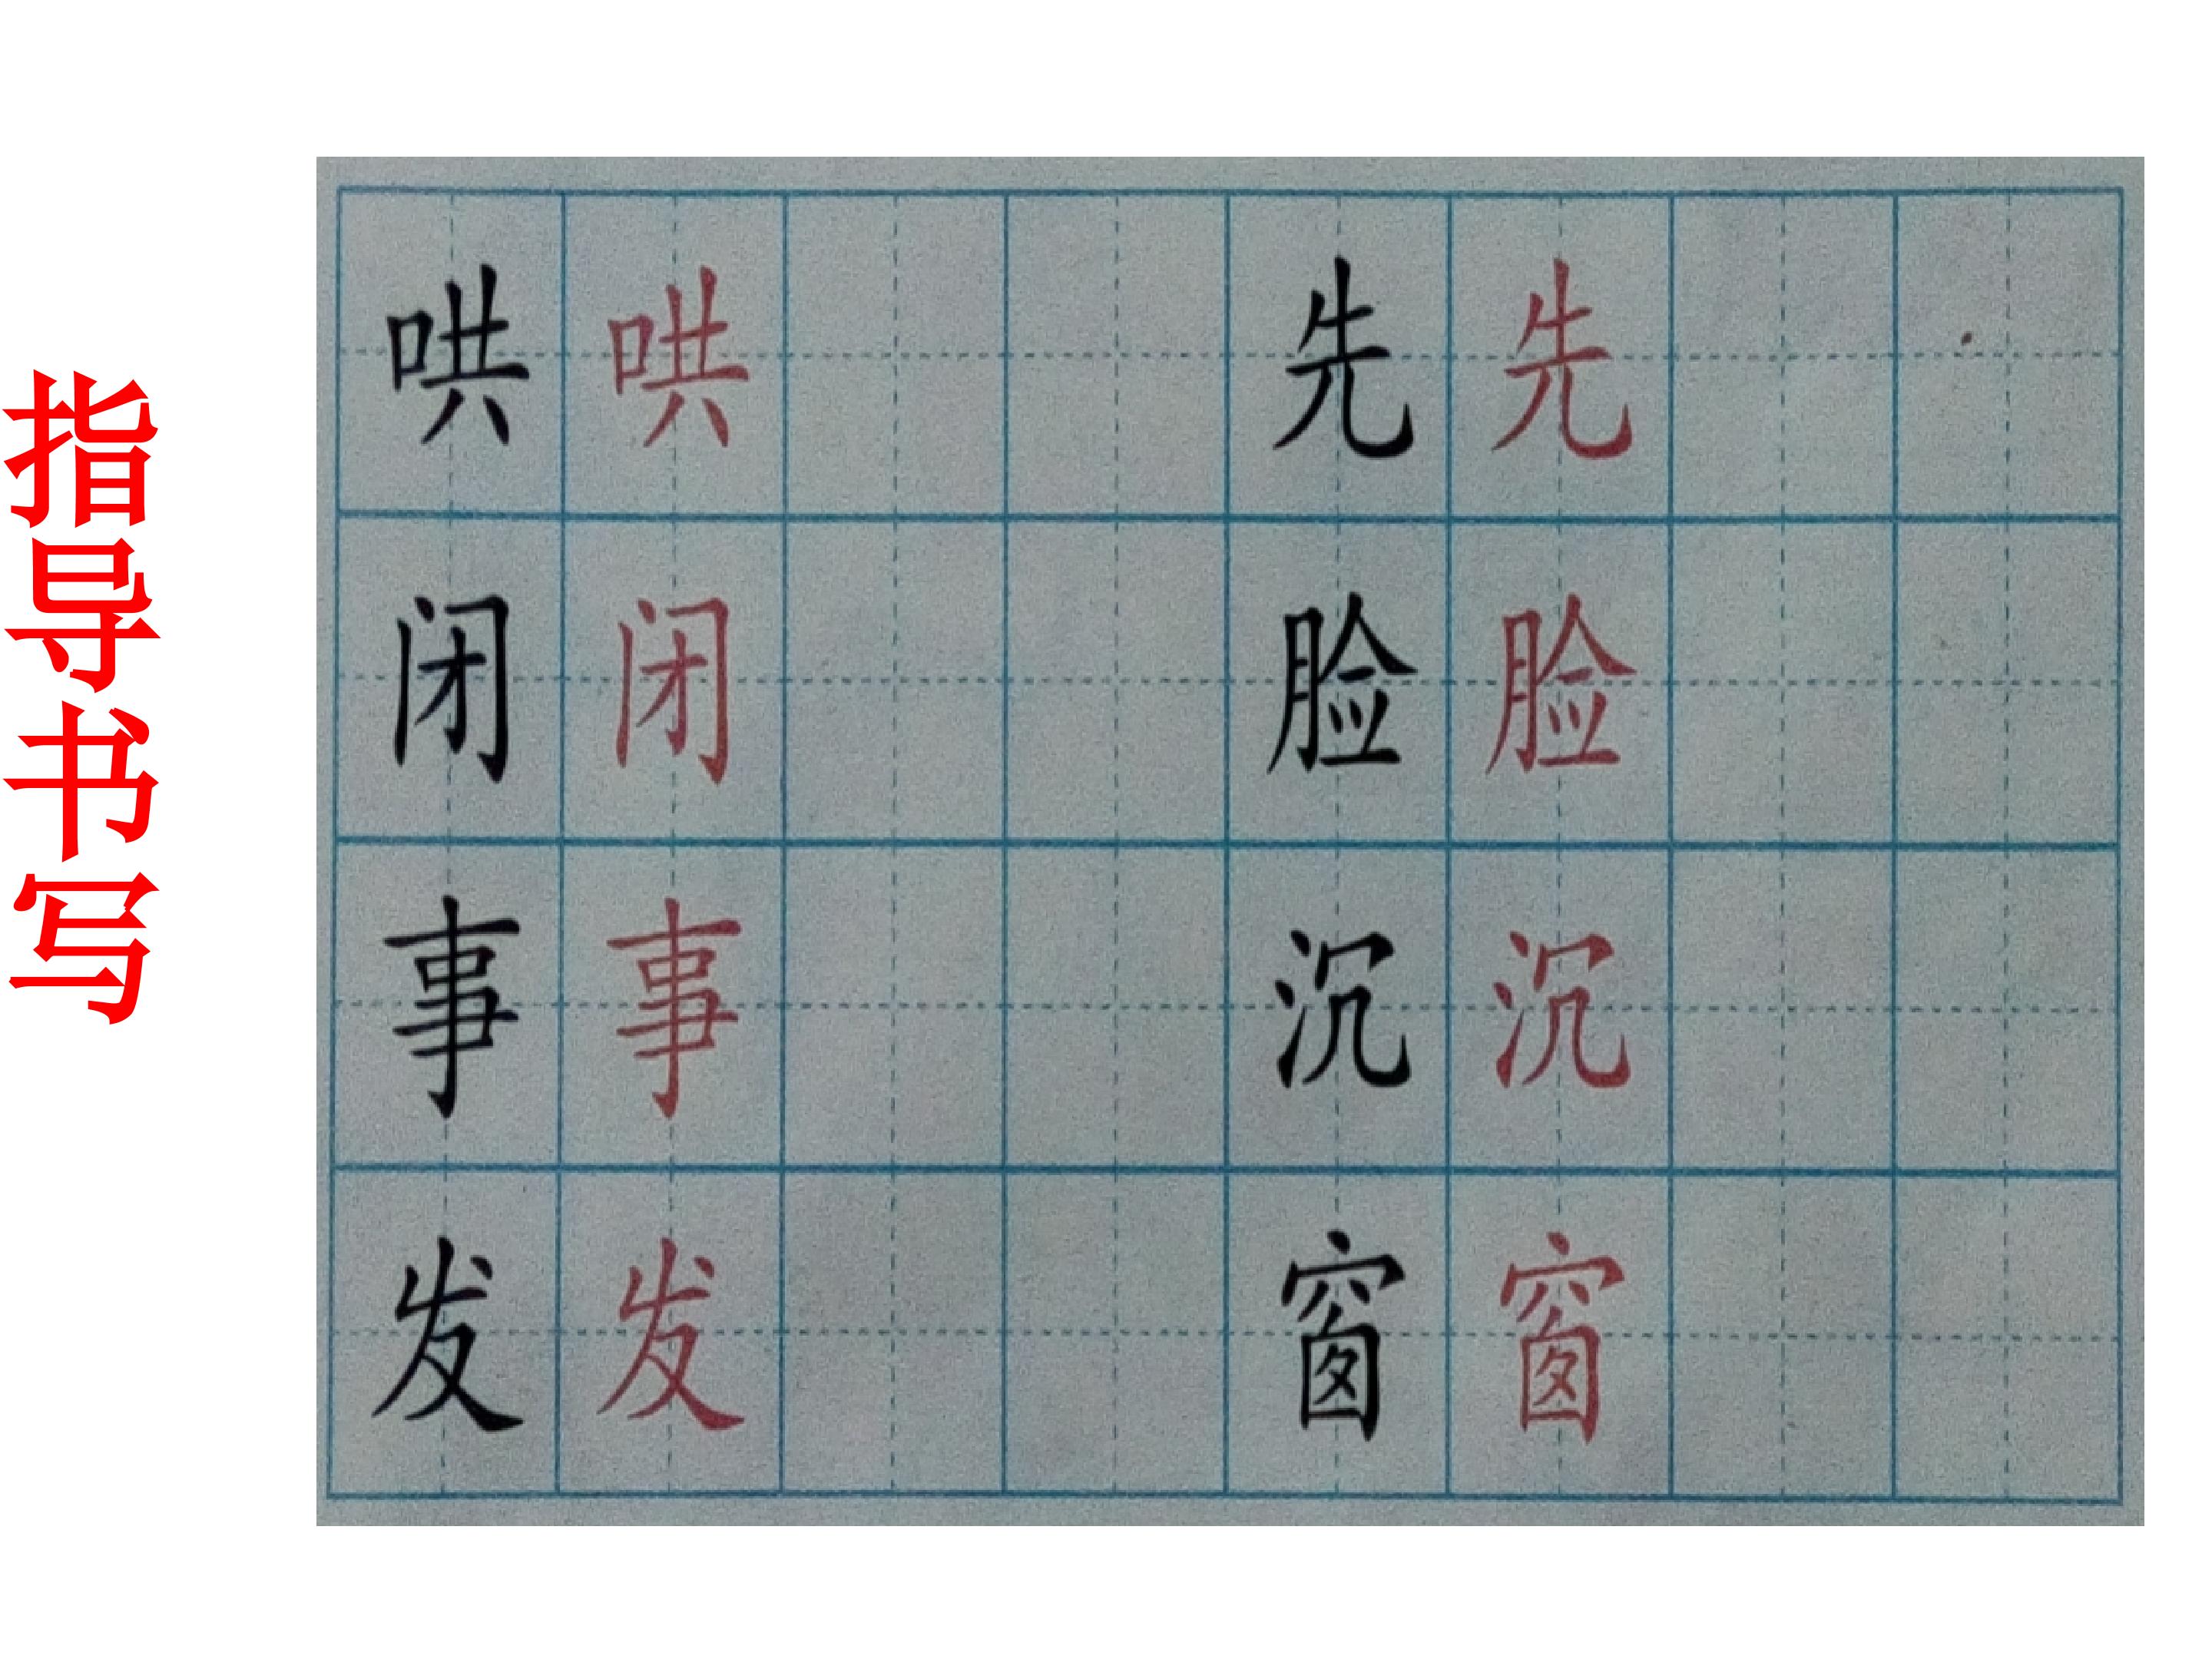 指导书写
哄 哄 先 先
闭 闭 脸 脸
事 事 沉 沉
发 发 窗 窗